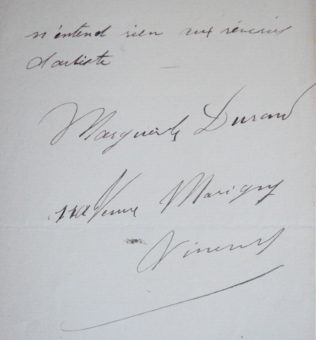 n'entend rien aux rêveries
d'artiste
Marguerite Durand
Avenue Marigny
Vincennes